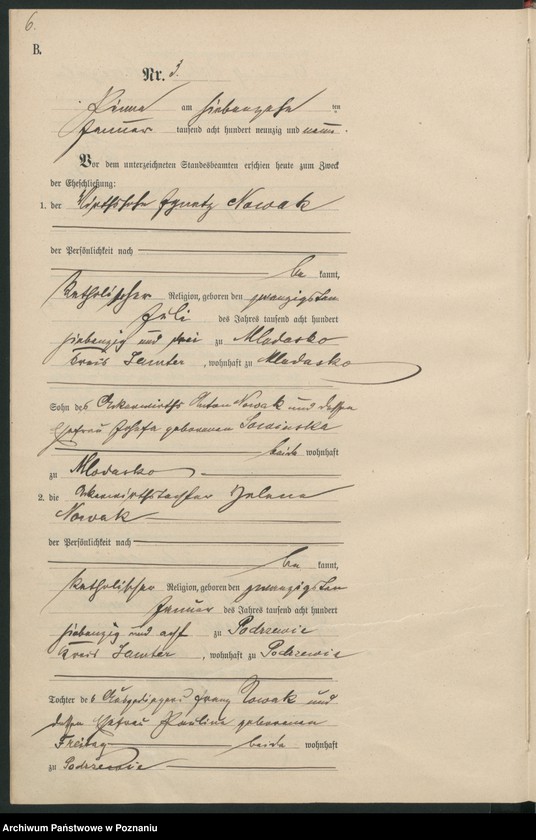 6.
B.
Nr. 3.
Pinne am siebenzehn ten
Januar tausend acht hundert neunzig und neun.
Vor dem unterzeichneten Standesbeamten erschien heute zum Zweck
der Eheschließung:
1. der Wirthssohn Ignatz Nowak
der Persönlichkeit nach
be kannt,
katholischer Religion, geboren den zwanzigsten
Juli des Jahres tausend acht hundert
siebenzig und drei zu Mlodasko
Kreis Samter, wohnhaft zu Mlodasko
Sohn des Ackerwirths Anton Nowak und dessen
Ehefrau Josefa geborenen Sowinska
beide wohnhaft
zu Mlodasko
2. die Ackerwirthstochter Helena
Nowak
der Persönlichkeit nach
be kannt,
katholischer Religion, geboren den zwanzigsten
Januar des Jahres tausend acht hundert
siebenzig und acht zu Podrzewie
Kreis Samter, wohnhaft zu Podrzewie
Tochter des Ausgedingers Franz Nowak und
dessen Ehefrau Pauline geborenen
Freitag beide wohnhaft
zu Podrzewie
Archiwum Państwowe w Poznaniu